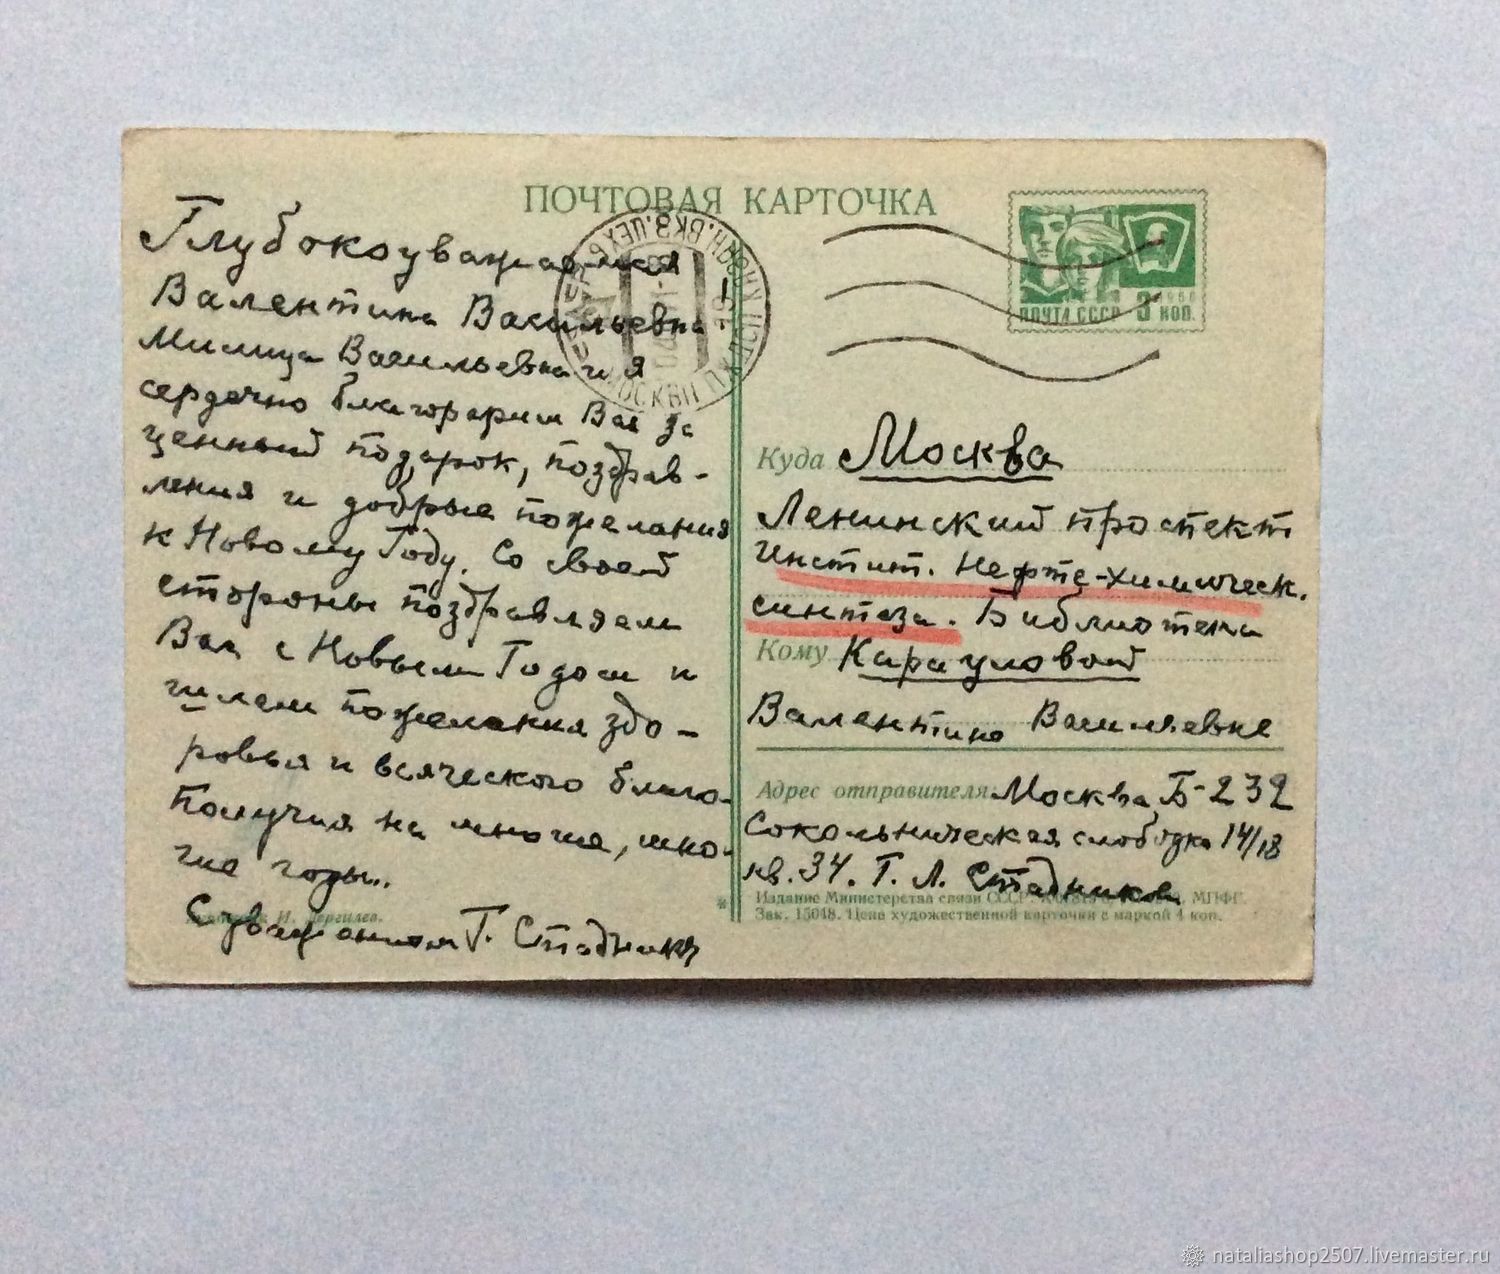 ПОЧТОВАЯ КАРТОЧКА
Глубокоуважаемая
Валентина Васильевна
Милица Васильевна и я
сердечно благодарим Вас за
ценный подарок, поздрав-
ления и добрые пожелания
к Новому Году. Со своей
стороны поздравляем
Вас с Новым Годом и
шлем пожелания здо-
ровья и всяческого благо-
получия на многие, мно-
гие годы..
С уважением Г. Стадников
ПОЧТА СССР 3 КОП.
1966
Куда Москва
Ленинский проспект
Инстит. Нефте-химическ.
синтеза. Библиотека
Кому Карауловой
Валентине Васильевне
Адрес отправителя Москва Б-232
Сокольническая слободка 14/18
кв. 34. Г. Л. Стадников
Издание Министерства связи СССР МПФГ
Зак. 15048. Цена художественной карточки с маркой 4 коп.
nataliashop2507.livemaster.ru